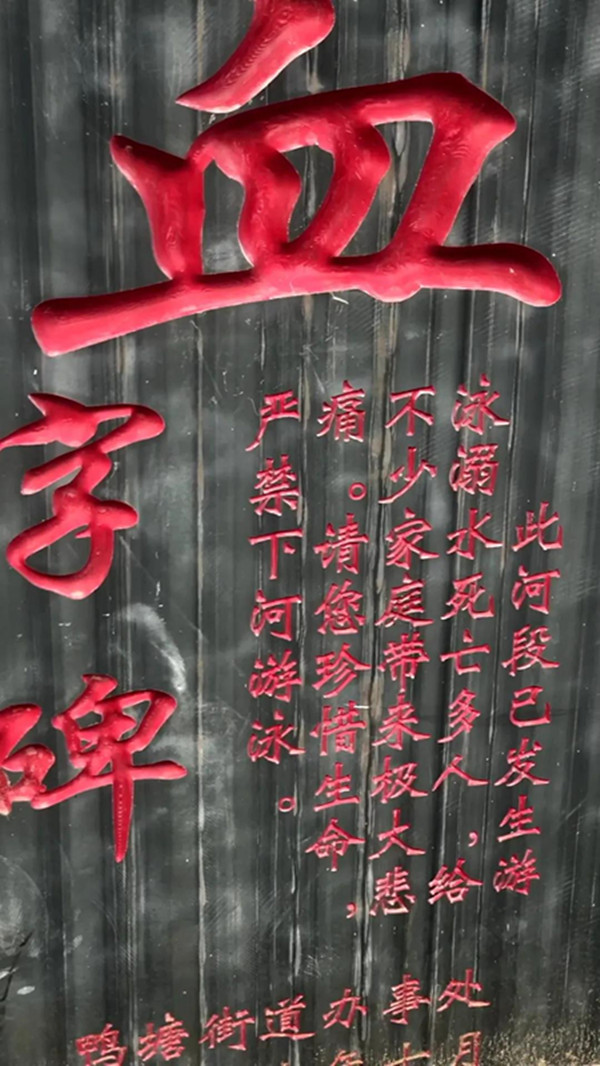 血
字
碑
此河段已发生游
泳溺水死亡多人，给
不少家庭带来极大悲
痛。请您珍惜生命，
严禁下河游泳。
鸭塘街道办事处